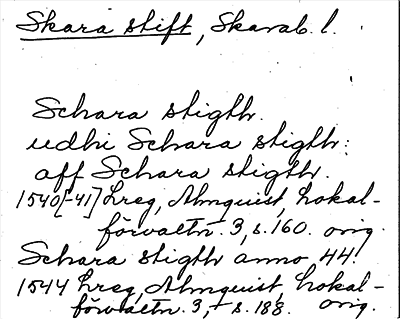 Skara stift, Skarab. l.
Schara stigth.
udhi Schara stigth:
aff Schara stigth.
1540[-41] hreg, Almquist, Lokal-
förvaltn. 3, s. 160. orig.
Schara stigth anno 44.
1544 hreg, Almquist, Lokal-
förvaltn. 3, s. 188. orig.